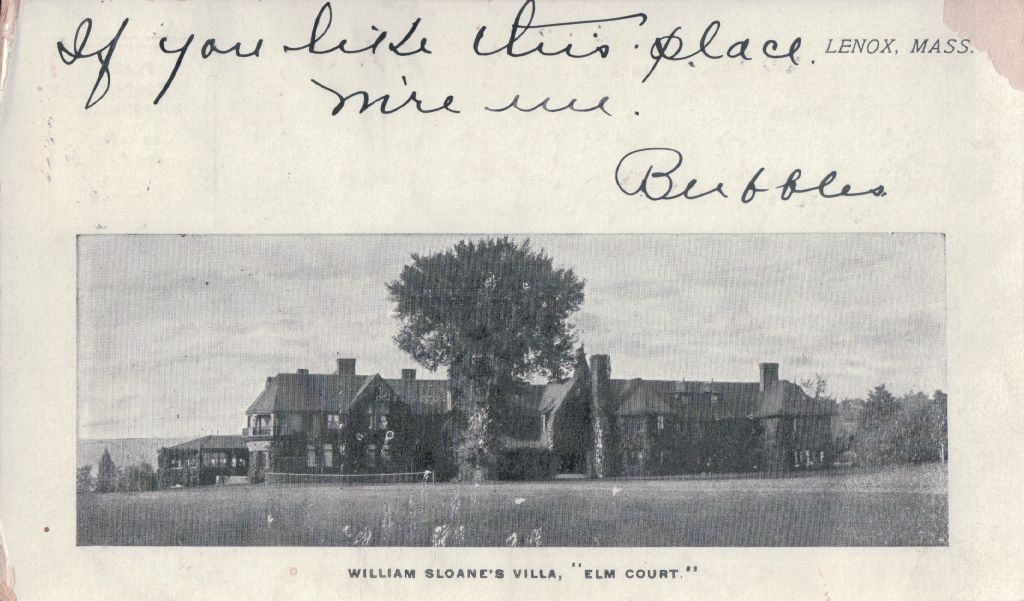 If you like this place. LENOX, MASS.
Wire me.
Bubbles
WILLIAM SLOANE'S VILLA, "ELM COURT."